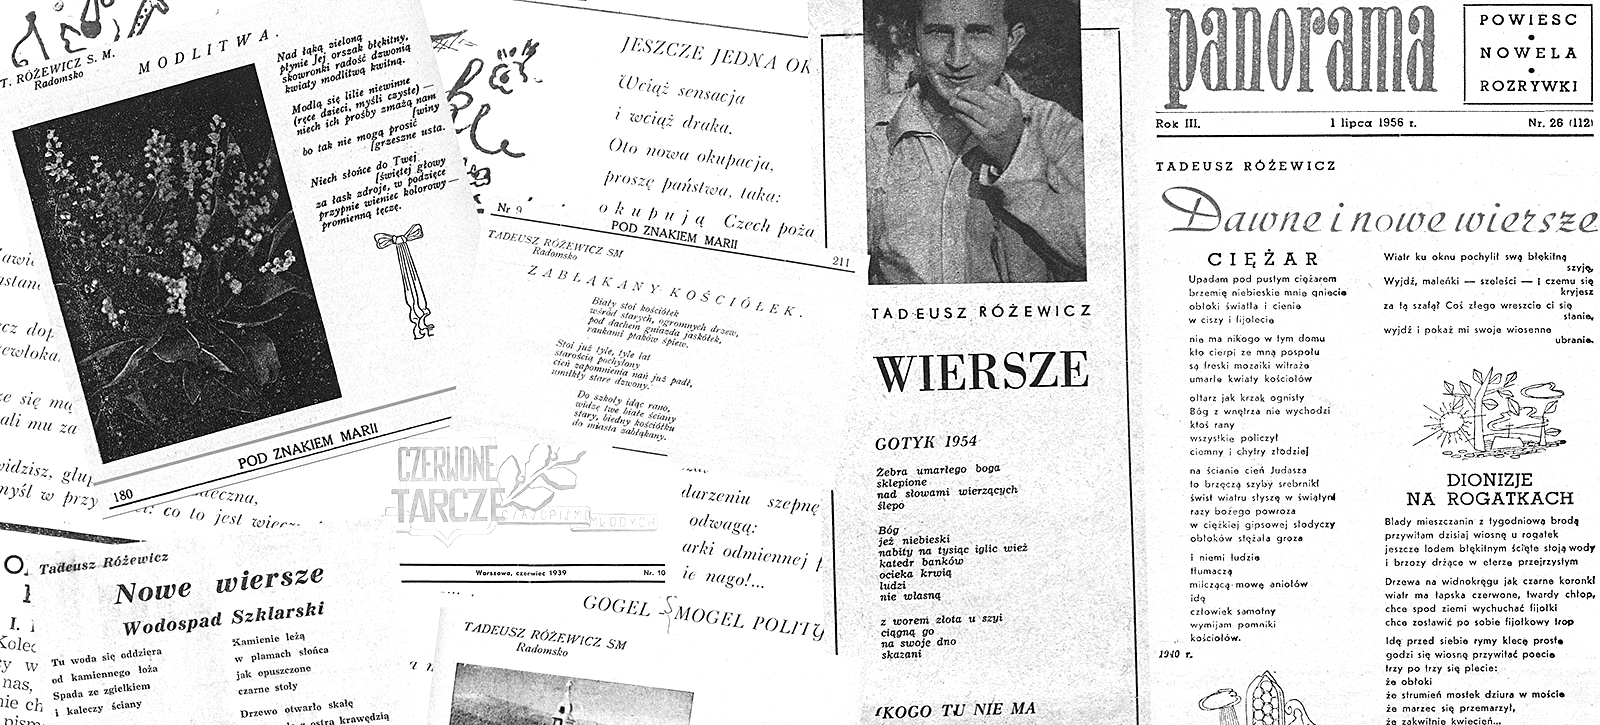 T. RÓŻEWICZ S. M.
Radomsko
MODLITWA.
Nad łąką zieloną
płynie Jej orszak błękitny,
skowronki radość dzwonią
kwiaty modlitwą kwitną.
Modlą się lilie niewinne
(ręce dzieci, myśli czyste) —
niech ich prośby zmażą nam
[winy
bo tak nie mogą prosić
[grzeszne usta.
Niech słońce do Twej
[świętej głowy
za łask zdroje, w podzięce
przypnie wieniec kolorowy —
promienną tęczę.
POD ZNAKIEM MARII
180
JESZCZE JEDNA OK
Wciąż sensacja
i wciąż draka.
Oto nowa okupacja,
proszę państwa, taka:
okupują Czech poża
Nr 9
POD ZNAKIEM MARII
211
TADEUSZ RÓŻEWICZ SM
Radomsko
ZABŁĄKANY KOŚCIÓŁEK.
Biały stoi kościółek
wśród starych, ogromnych drzew,
pod dachem gniazda jaskółek,
rankami ptaków śpiew.
Stoi już tyle, tyle lat
starością pochylony
cień zapomnienia nań już padł,
umilkły stare dzwony.
Do szkoły idąc rano,
widzę twe białe ściany
stary, biedny kościółku
do miasta zabłąkany.
CZERWONE
TARCZE
CZASOPISMO MŁODYCH
Warszawa, czerwiec 1939
Nr. 10
darzeniu szepnę
odwagą:
arki odmiennej
ie nago!...
co to jest
GOGEL SMOGEL POLITY
TADEUSZ RÓŻEWICZ SM
Radomsko
Tadeusz Różewicz
Nowe wiersze
Wodospad Szklarski
Tu woda się oddziera
od kamiennego łoża
Spada ze zgiełkiem
i kaleczy ściany
Kamienie leżą
w plamach słońca
jak opuszczone
czarne stoły
Drzewo otwarło skałę
ostrą krawędzią
TADEUSZ RÓŻEWICZ
WIERSZE
GOTYK 1954
Żebra umarłego boga
sklepione
nad słowami wierzących
ślepo
Bóg
jeż niebieski
nabity na tysiąc iglic wież
katedr banków
ocieka krwią
ludzi
nie własną
z worem złota u szyi
ciągną go
na swoje dno
skazani
KOGO TU NIE MA
panorama
POWIEŚC
•
NOWELA
•
ROZRYWKI
Rok III.
1 lipca 1956 r.
Nr. 26 (112)
TADEUSZ RÓŻEWICZ
Dawne i nowe wiersze
CIĘŻAR
Upadam pod pustym ciężarem
brzemię niebieskie mnie gniecie
obłoki światła i cienie
w ciszy i fijolecie
nie ma nikogo w tym domu
kto cierpi ze mną pospołu
są freski mozaiki witraże
umarłe kwiaty kościołów
ołtarz jak krzak ognisty
Bóg z wnętrza nie wychodzi
ktoś rany
wszystkie policzył
ciemny i chytry złodziej
na ścianie cień Judasza
to brzęczą szyby srebrniki
świst wiatru słyszę w świątyni
razy bożego powroza
w ciężkiej gipsowej słodyczy
obłoków stężała groza
i niemi ludzie
tłumaczą
milczącą mowę aniołów
idę
człowiek samotny
wymijam pomniki
kościołów.
1940 r.
Wiatr ku oknu pochylił swą błękitną
szyję,
Wyjdź, maleńki — szeleści — i czemu się
kryjesz
za tą szafą? Coś złego wreszcie ci się
stanie,
wyjdź i pokaż mi swoje wiosenne
ubranie.
DIONIZJE
NA ROGATKACH
Blady mieszczanin z tygodniową brodą
przywitam dzisiaj wiosnę u rogatek
jeszcze lodem błękitnym ścięte stoją wody
i brzozy drżące w eterze przejrzystym
Drzewa na widnokręgu jak czarne koronki
wiatr ma łapska czerwone, twardy chłop,
chce spod ziemi wychuchać fijołki
chce zostawić po sobie fijołkowy trop
Idę przed siebie rymy klecę proste
godzi się wiosnę przywitać poecie
trzy po trzy się plecie:
że obłoki
że strumień mostek dziura w moście
że marzec się przemarzył,
że zakwitnie kwiecień...